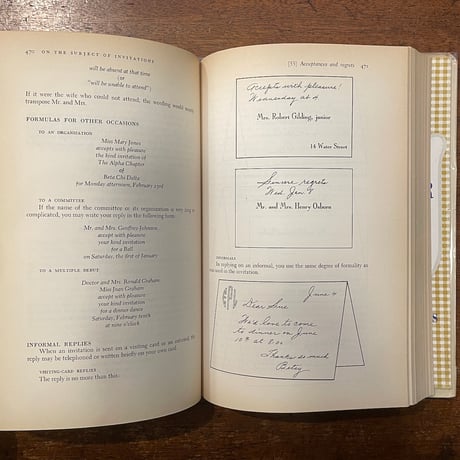 470 ON THE SUBJECT OF INVITATIONS
will be absent at that time
(or)
"will be unable to attend")
If it were the wife who could not attend, the wording would merely
transpose Mr. and Mrs.
FORMULAS FOR OTHER OCCASIONS
TO AN ORGANIZATION
Miss Mary Jones
accepts with pleasure
the kind invitation of
The Alpha Chapter
of
Beta Chi Delta
for Monday afternoon, February 23rd
TO A COMMITTEE
If the name of the committee or its organization is very long or
complicated, you may write your reply in the following form:
Mr. and Mrs. Geoffrey Johnson
accept with pleasure
your kind invitation
for a Ball
on Saturday, the first of January
TO A MULTIPLE DEBUT
Doctor and Mrs. Ronald Graham
Miss Joan Graham
accept with pleasure
your kind invitation
for a dinner dance
Saturday, February tenth
at nine o'clock
INFORMAL REPLIES
When an invitation is sent on a visiting card or an informal, the
reply may be telephoned or written briefly on your own card.
VISITING-CARD REPLIES
The reply is no more than this:
[55] Acceptances and regrets 471
Accepts with pleasure!
Wednesday at 4
Mrs. Robert Gilding, junior
14 Water Street
Sincere regrets
Wed. Jan. 8
Mr. and Mrs. Henry Osborn
INFORMALS
In replying on an informal, you use the same degree of formality as
was used in the invitation.
June 4
Dear Sue
We'd love to come
to dinner on June
10th at 8:00
Thanks so much
Betsy